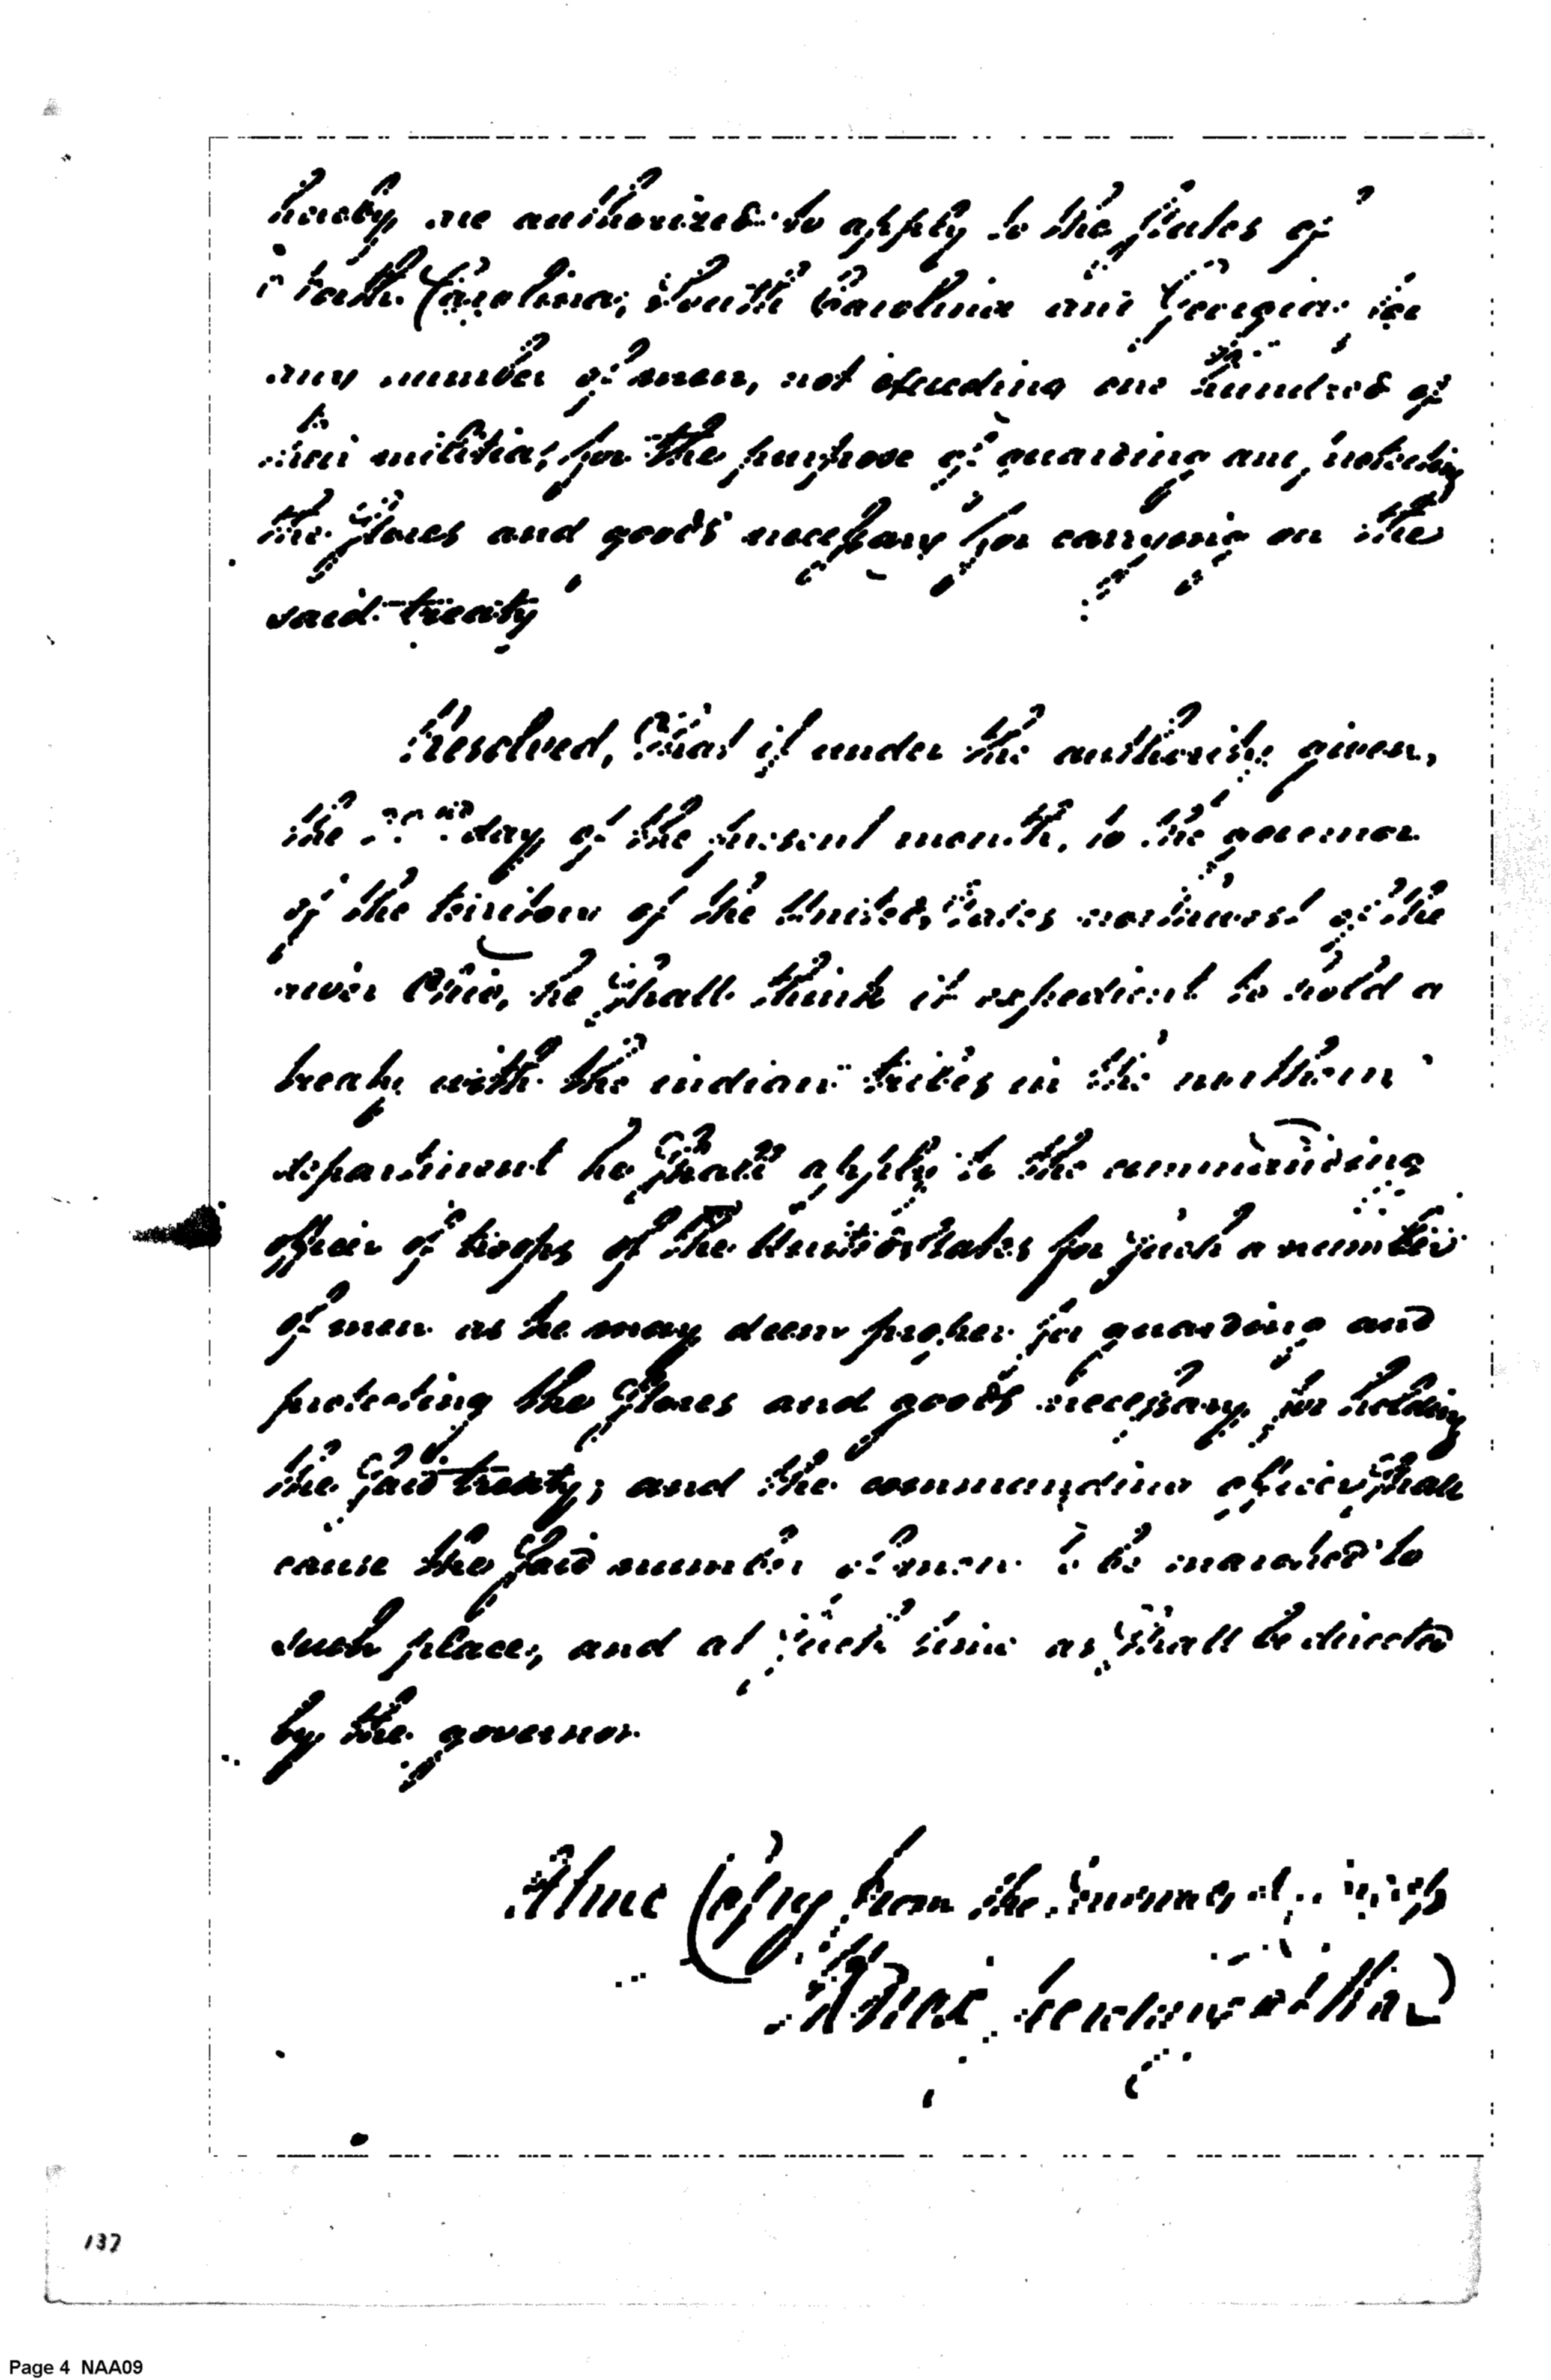 hereby are authorized to apply to the states of
North Carolina, South Carolina and Georgia for
any number of men, not exceeding one hundred of
their militia, for the purpose of guarding and protecting
the stores and goods necessary for carrying on the
said treaty
Resolved, That if under the authority given,
the day of the present month, to the governor
of the territory of the United States northwest of the
river Ohio, he shall think it expedient to hold a
treaty with the indian tribes in the northern
department he shall apply to the commanding
officer of troops of the United States for such a number
of men as he may deem proper for guarding and
protecting the stores and goods necessary for holding
the said treaty; and the commanding officer shall
cause the said number of men to be marched to
such place, and at such time as shall be directed
by the governor
A true Copy from the
137
Page 4 NAA09